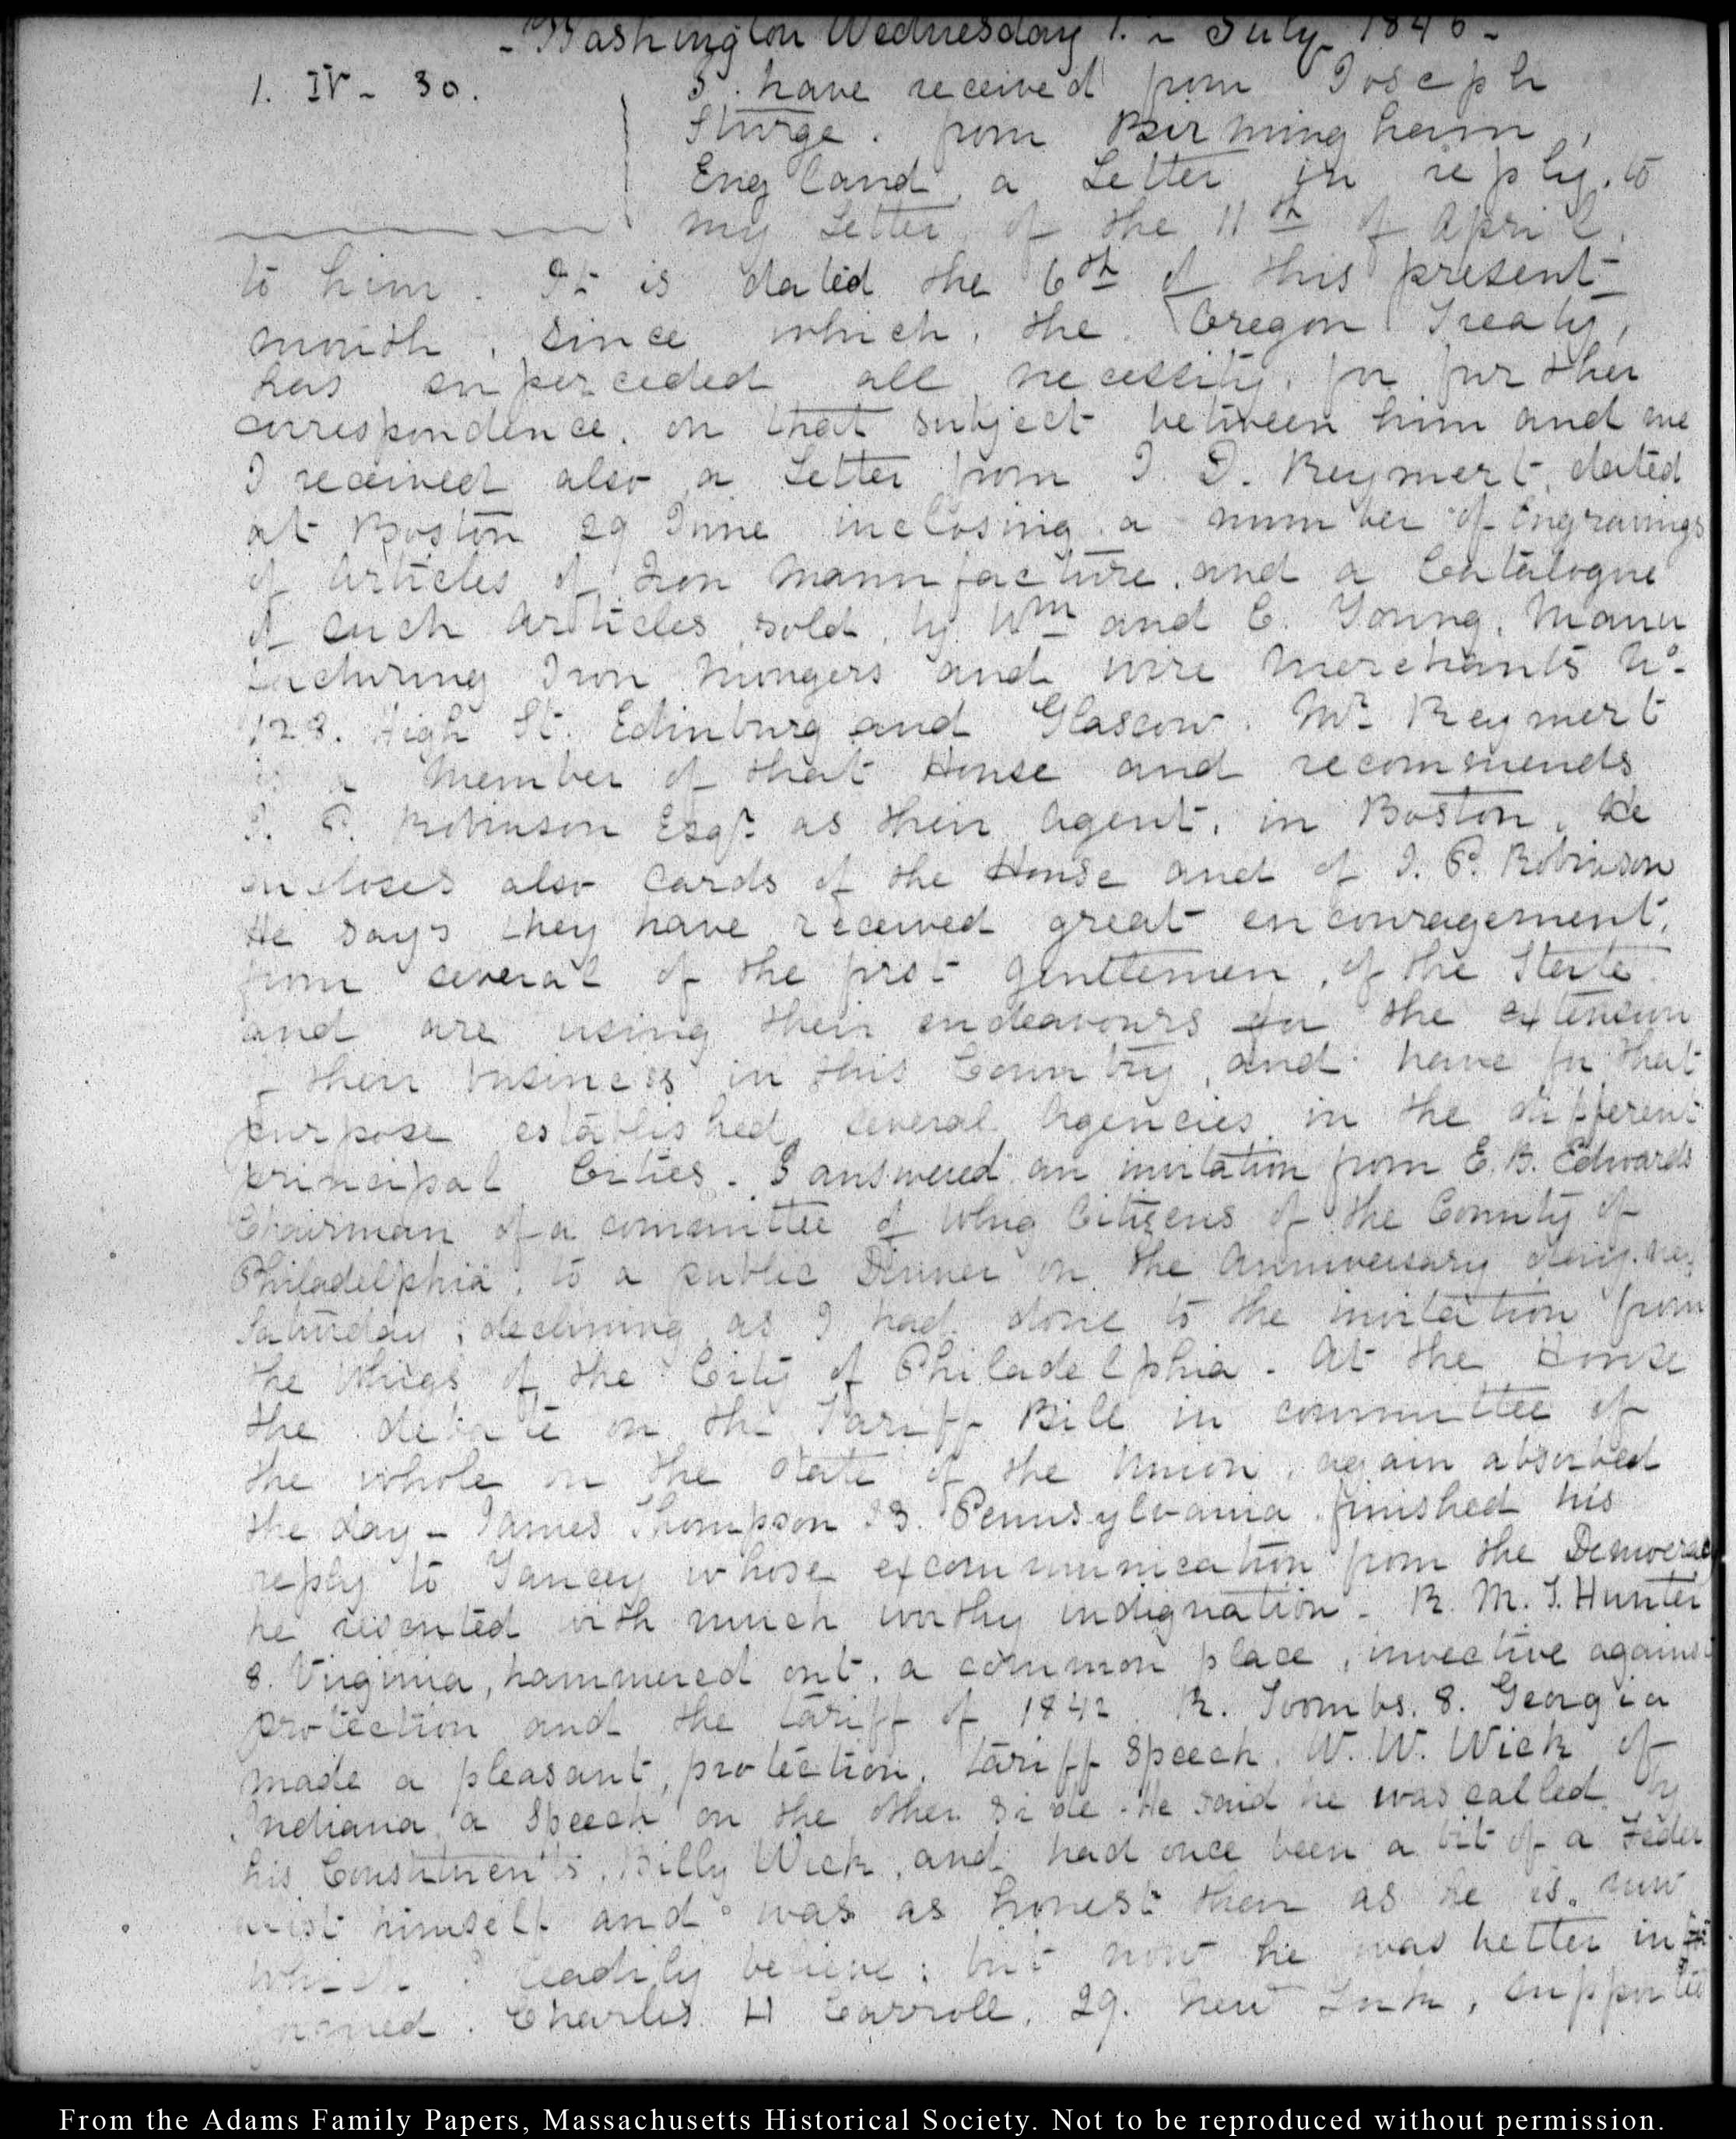 - Washington Wednesday 1. - July 1846 -
1. IV - 30.
I have received from Joseph
Sturge. from Birmingham,
England, a Letter in reply, to
my Letter, of the 11th of April,
to him. It is dated the 6th of this present
month, since which, the Oregon Treaty,
has superceded all necessity, for further
correspondence, on that subject between him and me
I received also a Letter from J. D. Reymert, dated
at Boston 29 June inclosing a number of Engravings
of Articles of Iron Manufacture, and a Catalogue
of such Articles sold, by Wm and C. Young, Manu
facturing Iron Mongers and wire Merchants No.
128. High St. Edinburg and Glascow. Mr Reymert
is a Member of that House and recommends
J. P. Robinson Esqr. as their Agent, in Boston, He
encloses also Cards of the House and of J. P. Robinson
He says they have received great encouragement,
from several of the first gentlemen, of the State
and are using their endeavours for the extension
of their business in this Country, and have for that
purpose established, several Agencies in the different
principal Cities. I answered an invitation from E. B. Edwards
Chairman of a committee of Whig Citizens of the County of
Philadelphia, to a public Dinner on the Anniversary day, next
Saturday; declining as I had done to the invitation from
the Whigs of the City of Philadelphia - At the House
the debate on the Tariff Bill in committee of
the whole on the state of the Union, again absorbed
the day - James Thompson 23. Pennsylvania finished his
reply to Yancey whose excommunication from the Democracy
he resented with much worthy indignation - R. M. T. Hunter
8. Virginia, hammered out, a common place, invective against
protection and the tariff of 1842. R. Toombs. 8. Georgia
made a pleasant, protection, tariff speech, W. W. Wick of
Indiana, a speech on the other side. He said he was called by
his Constituents, Billy Wick, and had once been a bit of a Feder
alist himself and was as honest then as he is now
which I readily believe; but now he was better in
formed. Charles H Carroll, 29. New York, supported
From the Adams Family Papers, Massachusetts Historical Society. Not to be reproduced without permission.